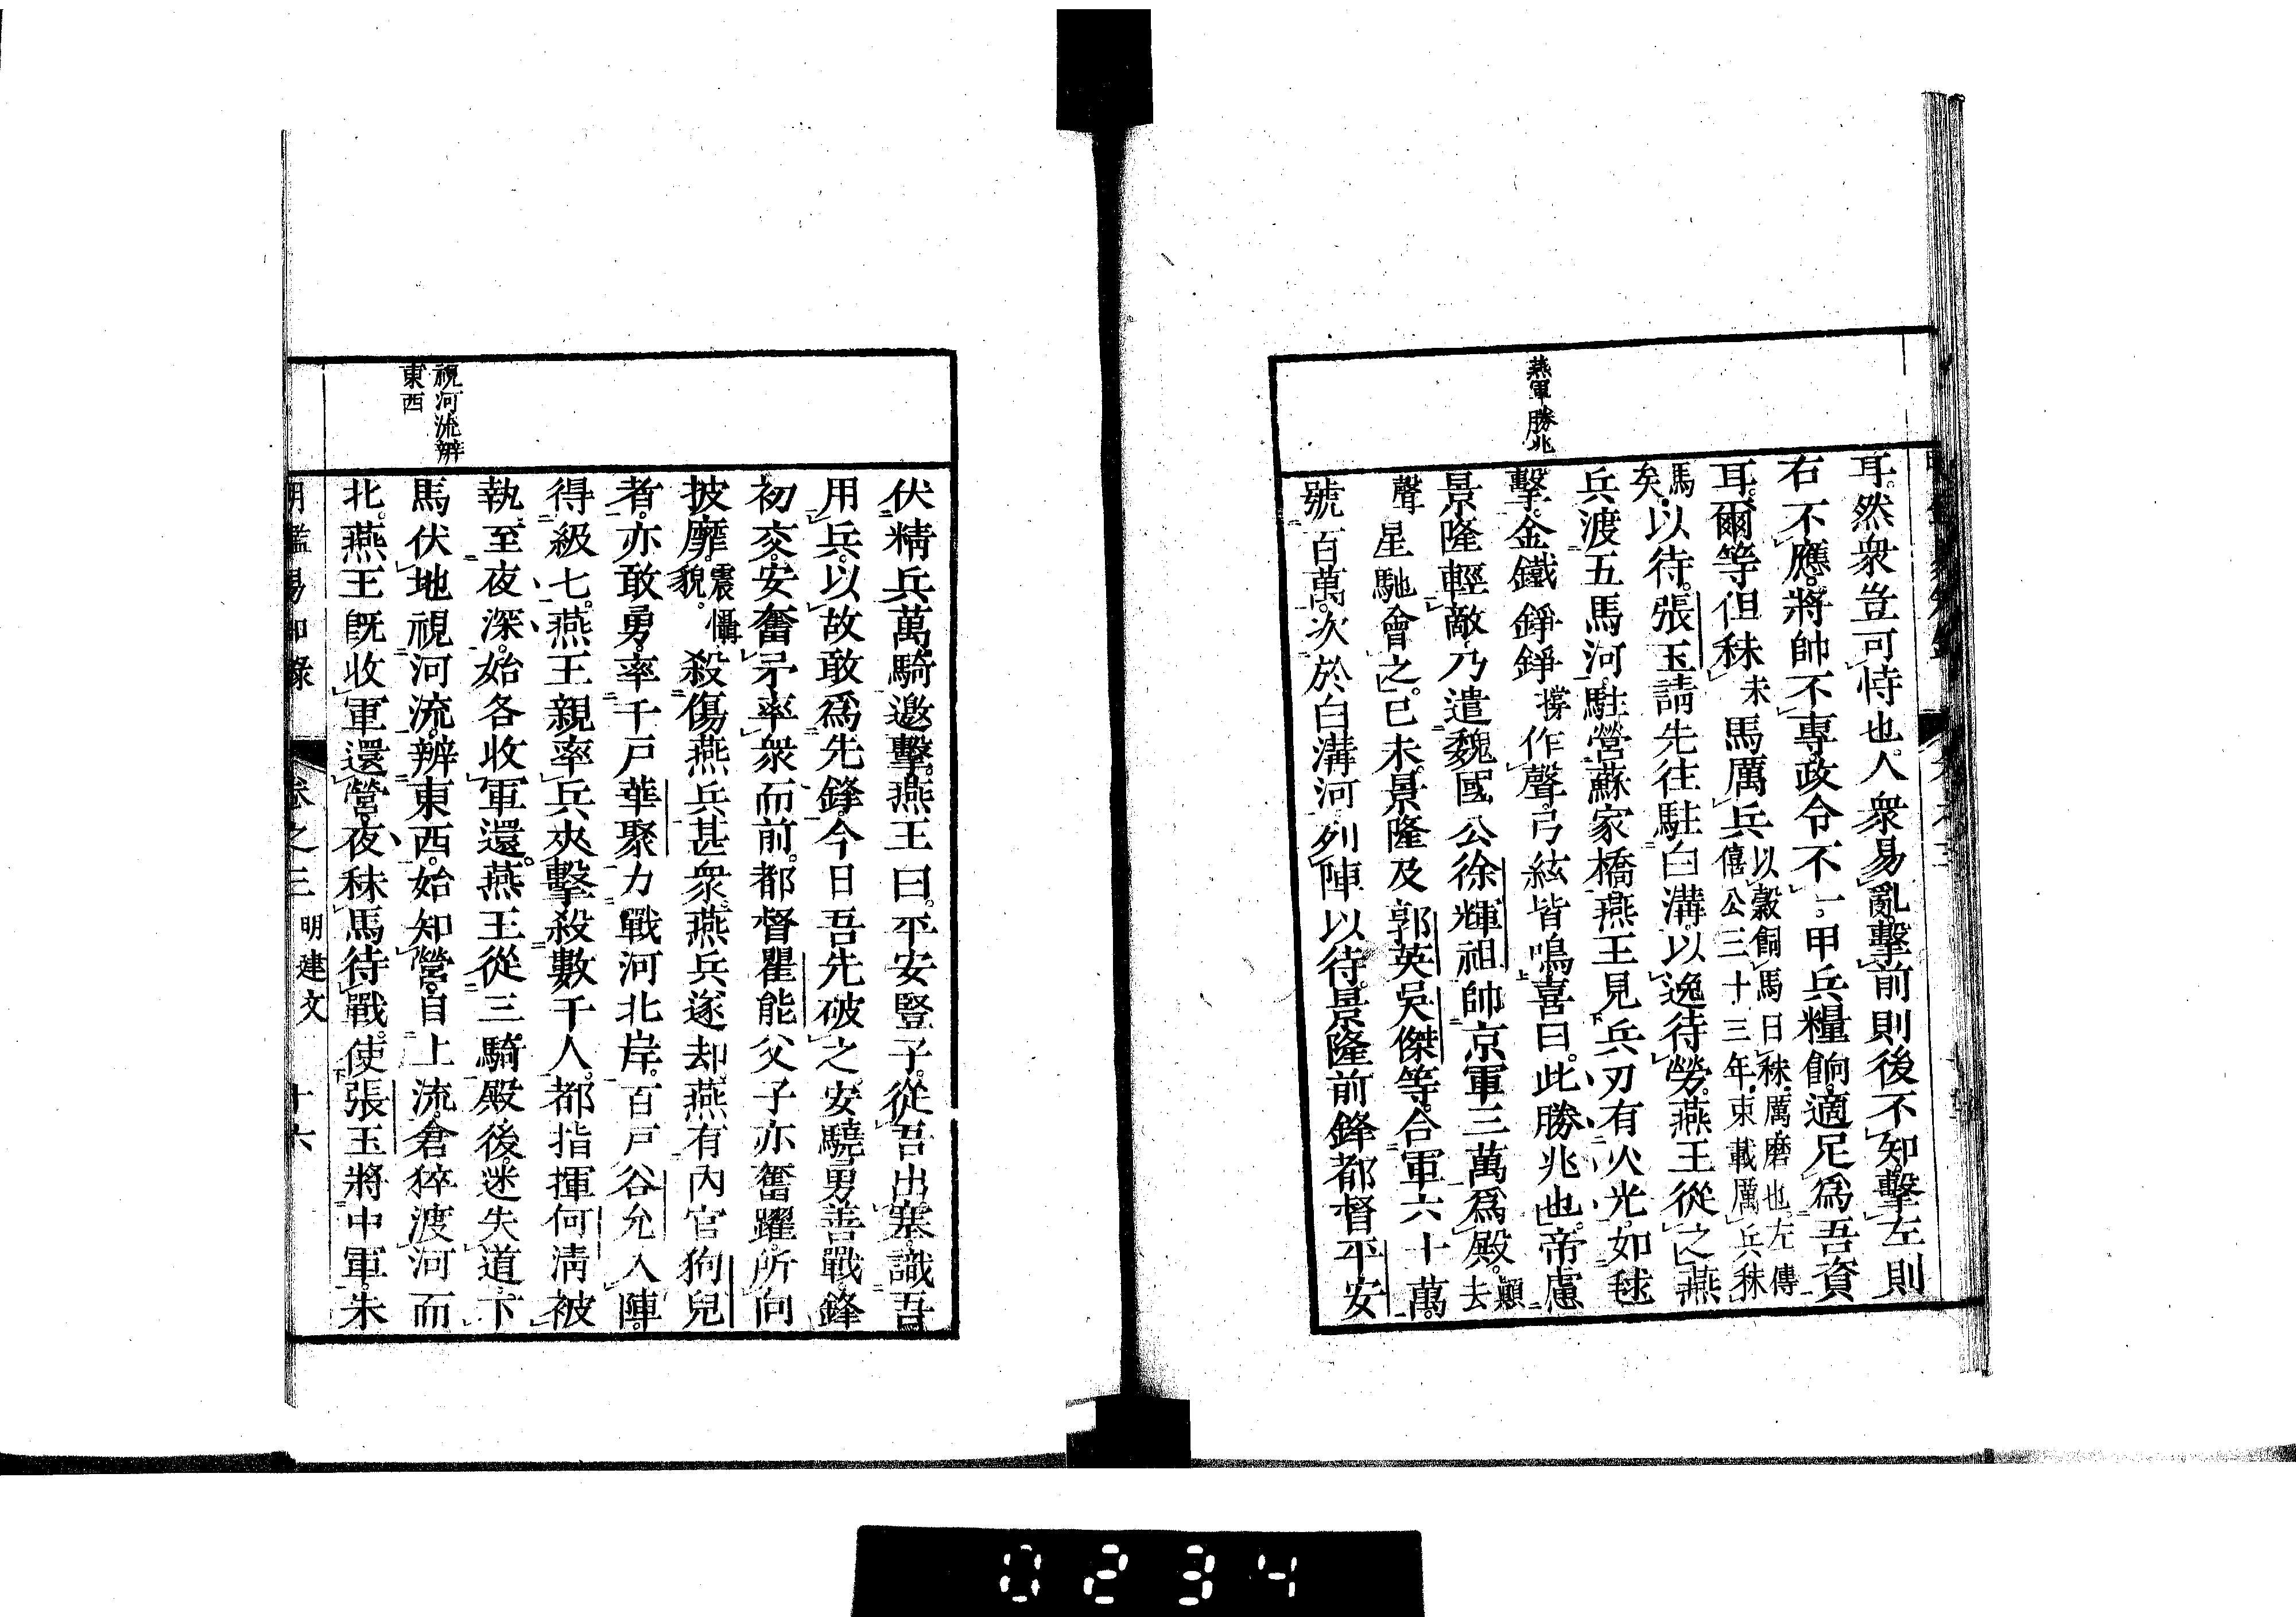 耳。然衆豈可恃也。人衆易亂。擊前則後不知。擊左則
右不應。將帥不專。政令不一。甲兵糧餉。適足爲吾資
耳。爾等但秣未馬厲兵以穀飼馬曰秣。厲磨也。左傳僖公三十三年。束載厲兵秣
馬矣。以待。張玉請先往駐白溝。以逸待勞。燕王從之。燕
兵渡五馬河。駐營蘇家橋。燕王見兵刃有火光。如毬
燕軍勝兆
擊。金鐵錚錚撐作聲。弓絃皆鳴。喜曰。此勝兆也。帝慮
景隆輕敵。乃遣魏國公徐輝祖帥京軍三萬爲殿。顚去
聲星馳會之。已未。景隆及郭英吳傑等。合軍六十萬。
號百萬。次於白溝河。列陣以待。景隆前鋒都督平安
伏精兵萬騎邀擊。燕王曰。平安豎子。從吾出塞。識吾
用兵。以故敢爲先鋒。今日吾先破之。安驍勇善戰。鋒
初交。安奮矛率衆而前。都督瞿能父子亦奮躍。所向
披靡。震懾貌。殺傷燕兵甚衆。燕兵遂却。燕有內官狗兒
者。亦敢勇。率千戶華聚力戰河北岸。百戶谷允入陣。
得級七。燕王親率兵夾擊。殺數千人。都指揮何淸被
執。至夜深。始各收軍還。燕王從三騎殿後。迷失道。下
視河流辨
東西
馬伏地視河流。辨東西。始知營。自上流。倉猝渡河而
北。燕王旣收軍還營。夜秣馬待戰。使張玉將中軍。朱
明鑑易知錄 卷之三 明建文 十六
0234